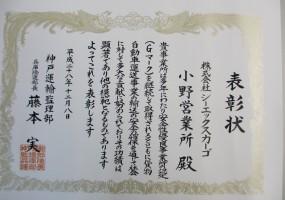 表彰状
株式会社シーエックスカーゴ
小野営業所 殿
貴事業所は多年にわたり安全性優良事業所認定
(Gマーク)を継続して取得されるとともに貨物
自動車運送事業の輸送の安全確保を通じて社会
に対して多大な貢献に努められておりその功績は
顕著であり他の模範となるものであります
よってこれを表彰します
平成二十八年十二月八日
神戸運輸監理部
兵庫陸運部長
藤本 実